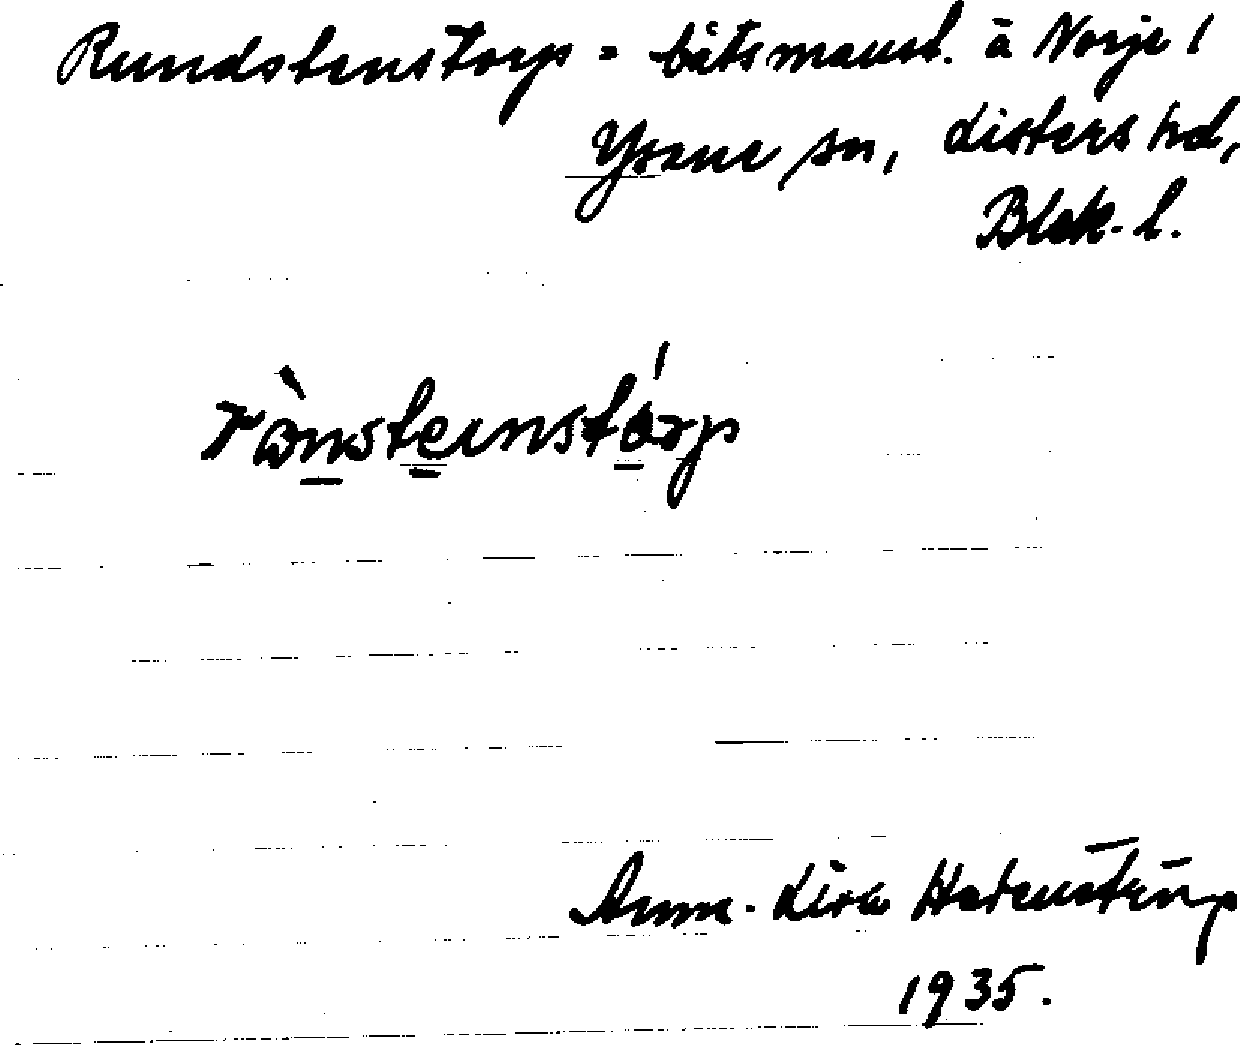 Rundstenstorp = båtsmanst. å Norje 1
Ysane sn, Listers hd,
Blek. l.
rònsteinstórp
Anna-Lisa Hatenstrup
1935.